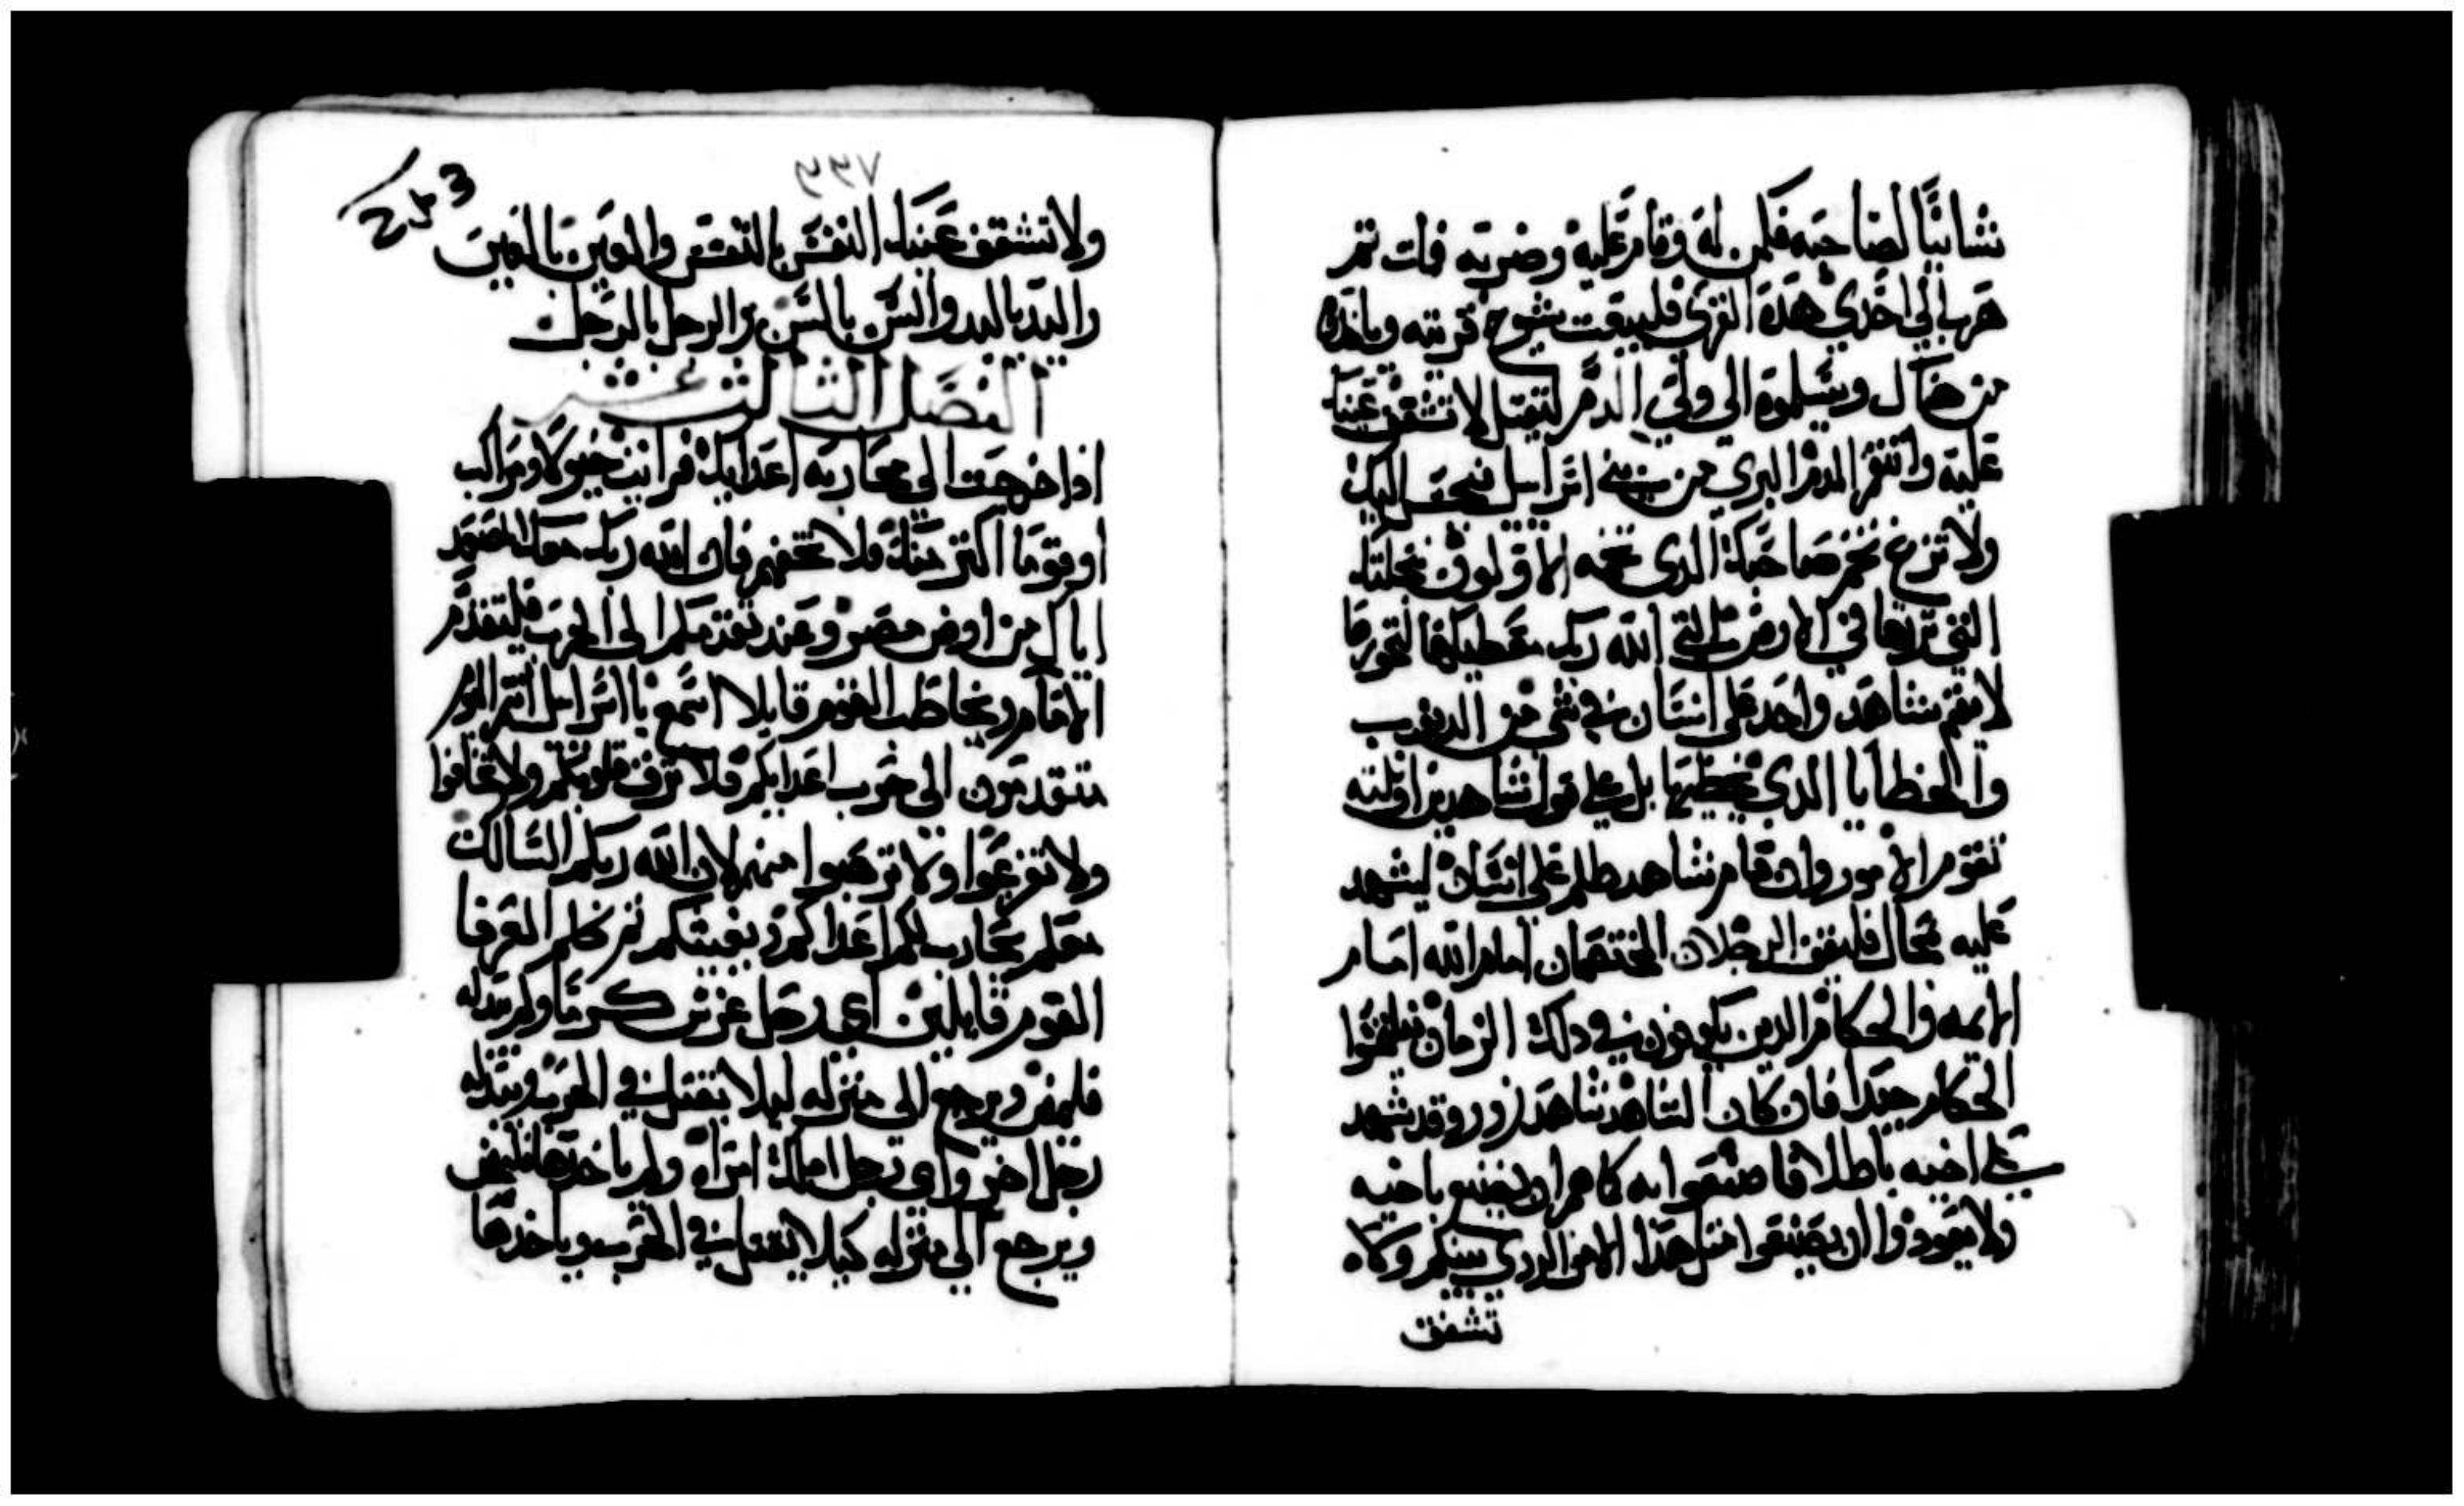 شانيًا لصاحبه فكمن له وقام عليه وضربه فمات ثم
هرب الي احدي هذه القري فليبعت شيوخ قريته وياخذه
من هناك ويسلموه الي ولي الدم ليقتل لا تشفق عينك
عليه وانتقم الدم البري من بني اسراييل فيحق اليك
ولا تزغ تخم صاحبك الدي تخمه الاولون نحلتك
التي ترتها في الارض التي الله ربك معطيكها لتحوزها
لا يقم شاهد واحد علي انسان في شي من الدنوب
والخطايا الدي يخطيها بل علي قول شاهدين او تلته
تقوم الامور وان قام شاهد ظلم علي انسان ليشهد
عليه محال فليقف الرجلان المختصمان امام الله امام
الايمه والحكام الدين يكونون في دلك الزمان فيلتمسوا
الحكام جيدا فان كان الشاهد شاهد زور وقد شهد
علي اخيه باطلا فاصنعوا به كما هم ان يصنع باخيه
ولا يعودوا ان يصنعوا متل هدا الامر الردي بينكم وكلاه
تشفق
٢٣٧
ولا تشفق عينك النفس بالنفس والعين بالعين
واليد باليد والسن بالسن والرجل بالرجل
الفصل الثالث عشر
ادا خرجت الي محاربه اعدايك فرايت خيولا ومراكب
او قوما اكتر منك فلا تخفهم فان الله ربك معك المصعد
اياك من ارض مصر وعند تقدمكم الي الحرب فليتقدم
الامام ويخاطب القوم قايلا اسمع يا اسراييل انتم اليوم
متقدمون الي حرب اعدايكم فلا ترق قلوبكم ولا تخافوا
ولا تفزعوا ولا ترهبوا منهم لان الله ربكم السالك
معكم يحارب لكم اعداكم ويغيثكم ثم تكلم العرفا
القوم قايلين اي رجل غرس كرما ولم يبدله
فليمض ويرجع الي منزله ليلا يقتل في الحرب ويبدله
رجل اخر واي رجل املك امراه ولم ياخدها فليمض
ويرجع الي منزله كيلا يقتل في الحرب وياخدها